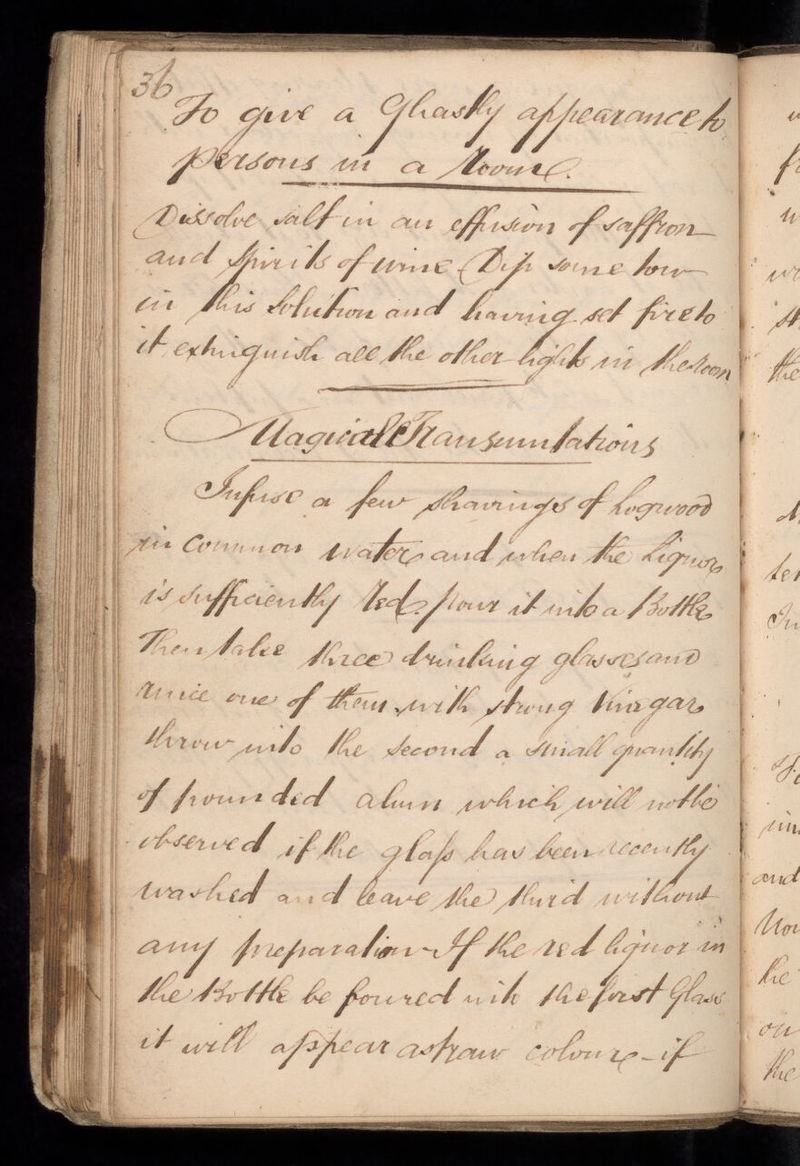 36
To give a Ghastly appearance to
persons in a Room.
Dissolve salt in an effusion of saffron
and Spirits of wine Dip some tow
in this Solution and having set fire to
it, extinguish all the other lights in the Room
Magical Transumtations
Infuse a few shavings of Logwood
in common water and when the Liquor
is sufficiently Red pour it into a Bottle
Then take three drinking glasses and
rince one of them with strong Vinegar
throw into the Second a small quantity
of pounded alum which will not be
observed if the glass has been recently
washed and leave the third without
any preparation - If the red liquor in
the Bottle be poured into the first Glass
it will appear a straw colour - if
the
and
the
on
the